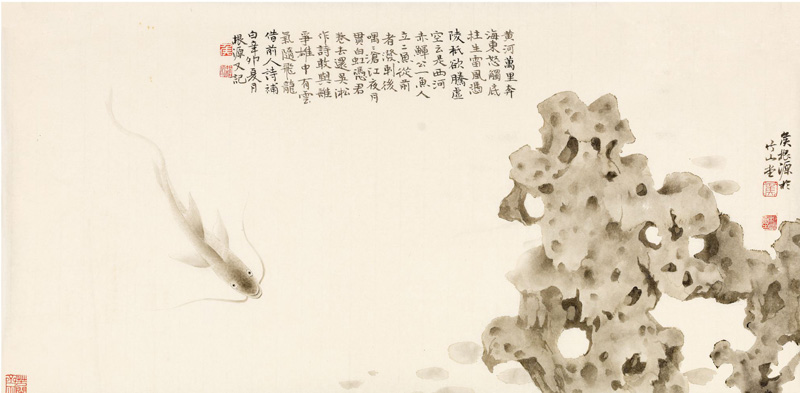 侯振源於
竹山堂
黃河萬里奔
海東怒觸底
柱生雷風憑
陵秖欲騰虛
空云是西河
赤鱓公一魚人
立二魚從前
者潑剌後
喁喁滄江夜月
貫白虹憑君
卷去還吳淞
作詩敢與
爭雄中有雲
氣隨飛龍
借前人詩補
白辛卯夏月
振源又記